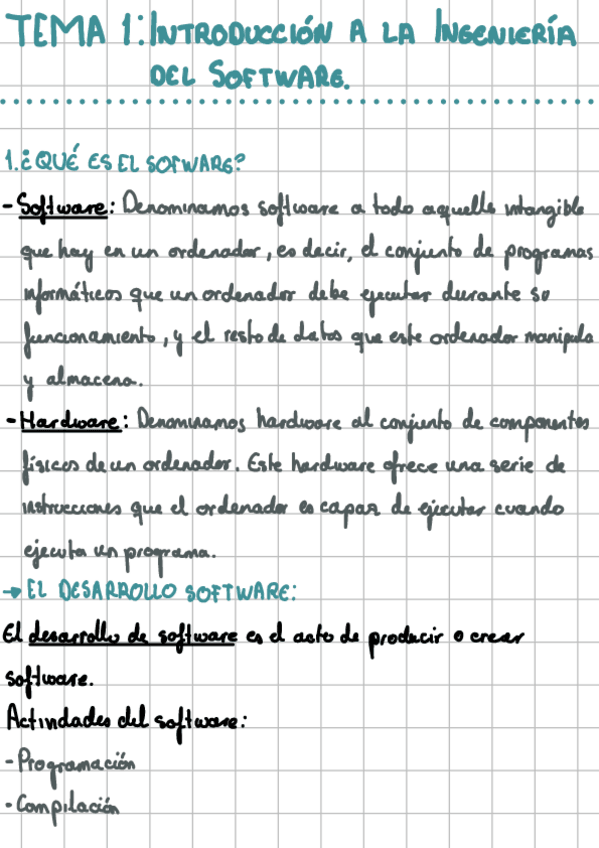 TEMA 1: INTRODUCCIÓN A LA INGENIERÍA
DEL SOFTWARE.
1. ¿QUÉ ES EL SOFWARE?
- Software: Denominamos software a todo aquello intangible
que hay en un ordenador, es decir, el conjunto de programas
informáticos que un ordenador debe ejecutar durante su
funcionamiento, y el resto de datos que este ordenador manipula
y almacena.
- Hardware: Denominamos hardware al conjunto de componentes
físicos de un ordenador. Este hardware ofrece una serie de
instrucciones que el ordenador es capaz de ejecutar cuando
ejecuta un programa.
→ EL DESARROLLO SOFTWARE:
El desarrollo de software es el acto de producir o crear
software.
Actividades del software:
- Programación
- Compilación